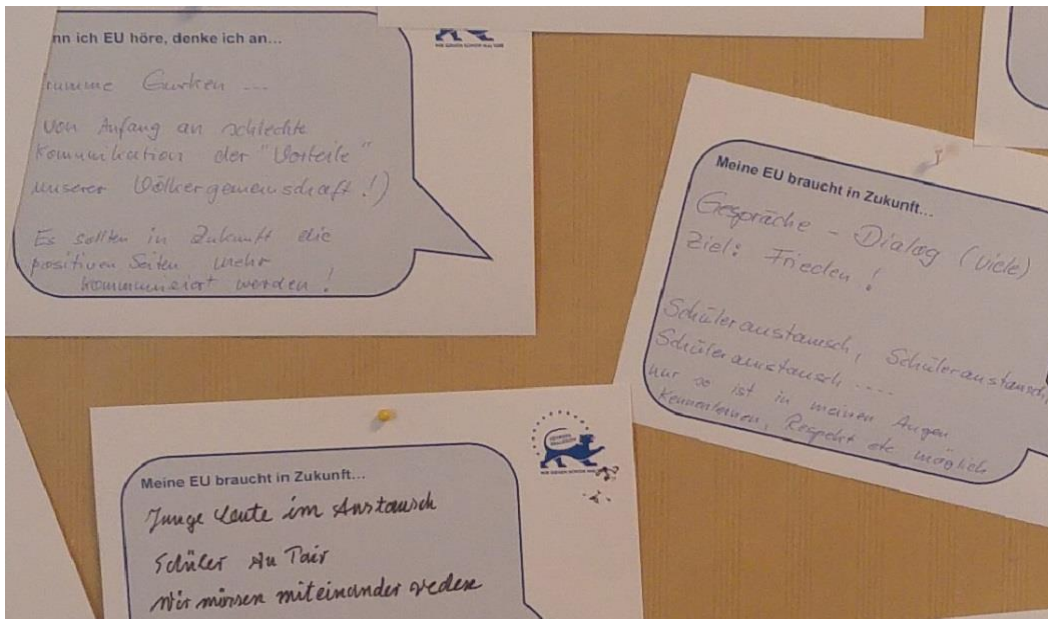 nn ich EU höre, denke ich an...
krumme Gurken ...
von Anfang an schlechte
Kommunikation der "Vorteile"
unserer Völkergemeinschaft!)
Es sollten in Zukunft die
positiven Seiten mehr
kommuniziert werden!
Meine EU braucht in Zukunft...
Gespräche - Dialog (viele)
Ziel: Frieden!
Schüleraustausch, Schüleraustausch,
Schüleraustausch ....
nur so ist in meinen Augen
Kennenlernen, Respekt etc. möglich
Meine EU braucht in Zukunft...
Junge Leute im Austausch
Schüler Au Pair
Wir müssen miteinander reden